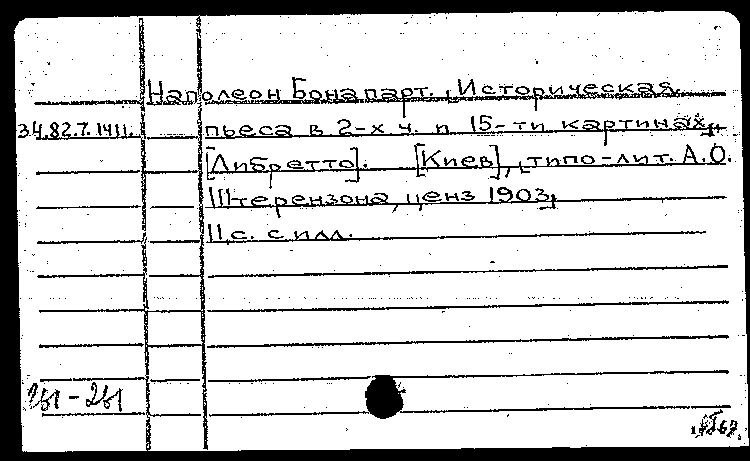 Наполеон Бонапарт. Историческая
34.82.7.1411. пьеса в 2-х ч. и 15-ти картинах,
[Либретто]. [Киев], типо-лит. А.О.
Штерензона, ценз 1903,
11 с. с илл.